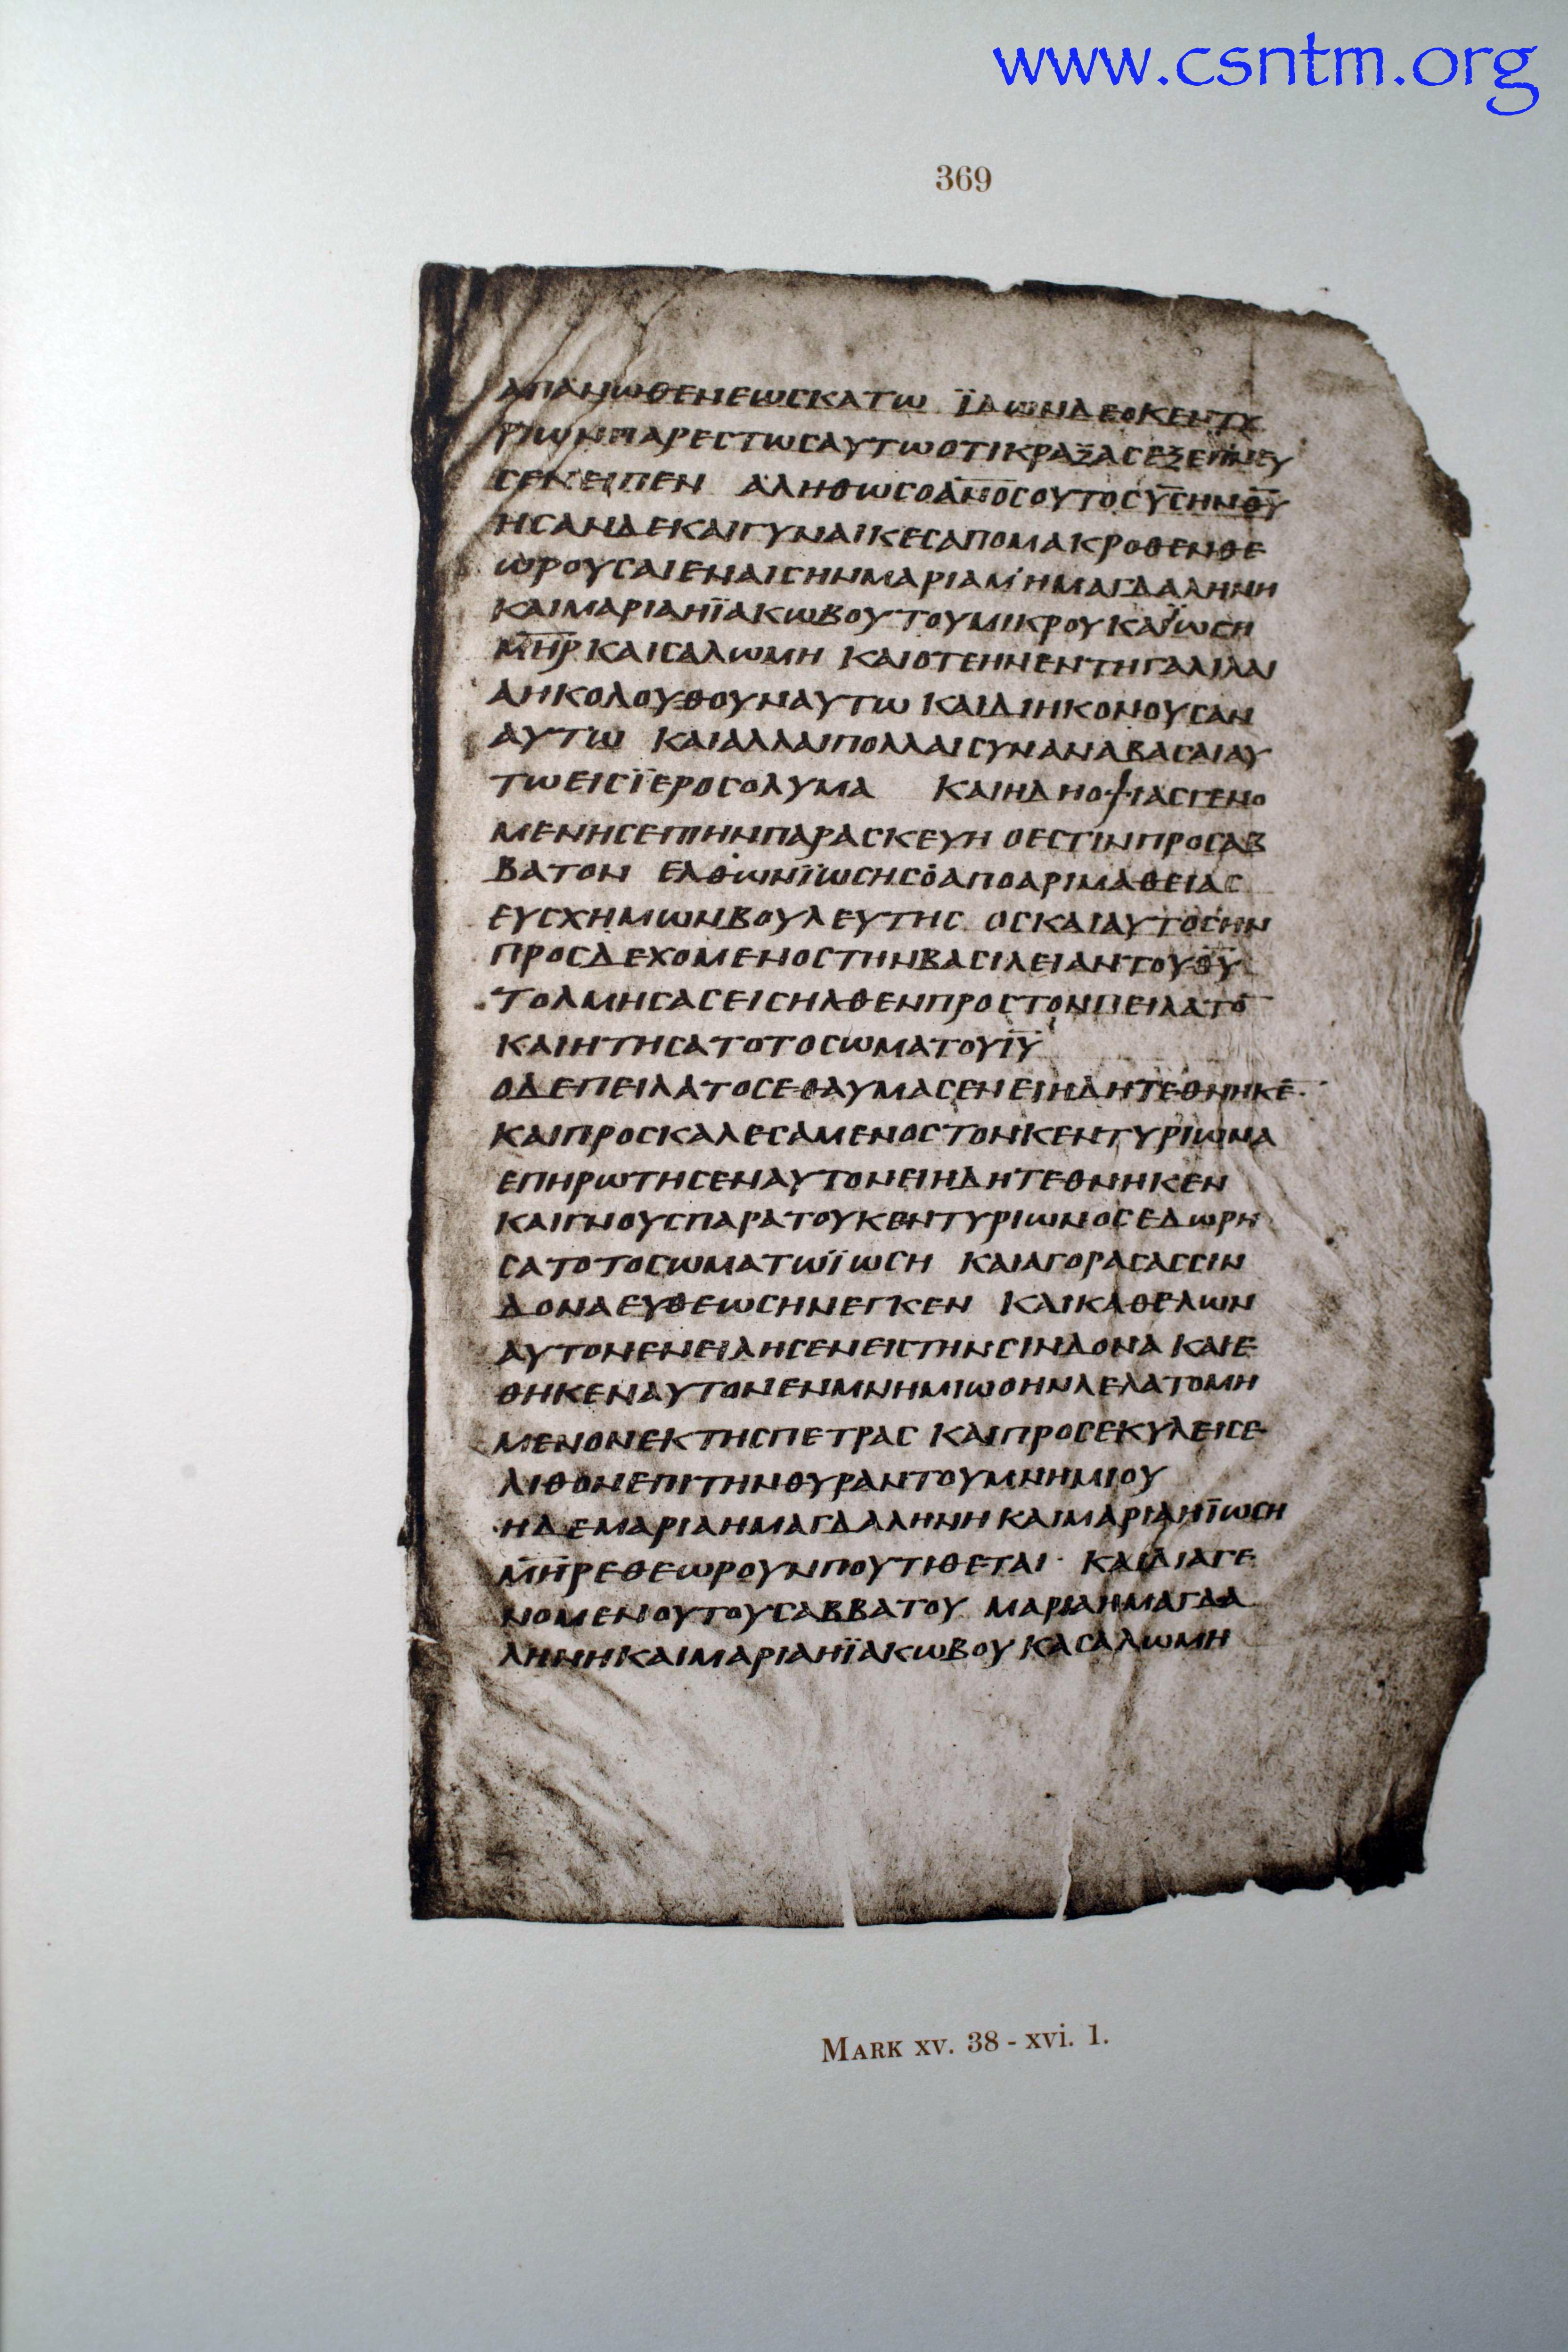 www.csntm.org
369
ΑΠΑΝΩΘΕΝΕΩϹΚΑΤΩ ΪΔΩΝΔΕΟΚΕΝΤΥ
ΡΙΩΝΠΑΡΕϹΤΩϹΑΥΤΩΟΤΙΚΡΑΞΑϹΕΞΕΠΝΕΥ
ϹΕΝΕΙΠΕΝ ΑΛΗΘΩϹΟΑ̅Ν̅Ο̅Ϲ̅ΟΥΤΟϹΥ̅Ϲ̅ΗΝΘ̅Υ̅
ΗϹΑΝΔΕΚΑΙΓΥΝΑΙΚΕϹΑΠΟΜΑΚΡΟΘΕΝΘΕ
ΩΡΟΥϹΑΙΕΝΑΙϹΗΝΜΑΡΙΑΜʼΗΜΑΓΔΑΛΗΝΗ
ΚΑΙΜΑΡΙΑΗΪΑΚΩΒΟΥΤΟΥΜΙΚΡΟΥΚΑΪΩϹΗ
Μ̅Η̅Ρ̅ΚΑΙϹΑΛΩΜΗ ΚΑΙΟΤΕΗΝΕΝΤΗΓΑΛΙΛΑΙ
ΑΗΚΟΛΟΥΘΟΥΝΑΥΤΩ ΚΑΙΔΙΗΚΟΝΟΥϹΑΝ
ΑΥΤΩ ΚΑΙΑΛΛΑΙΠΟΛΛΑΙϹΥΝΑΝΑΒΑϹΑΙΑΥ
ΤΩΕΙϹΪΕΡΟϹΟΛΥΜΑ ΚΑΙΗΔΗΟΨΙΑϹΓΕΝΟ
ΜΕΝΗϹΕΠΙΗΝΠΑΡΑϹΚΕΥΗ ΟΕϹΤΙΝΠΡΟϹΑΒ
ΒΑΤΟΝ ΕΛΘΩΝΪΩϹΗϹΟΑΠΟΑΡΙΜΑΘΕΙΑϹ
ΕΥϹΧΗΜΩΝΒΟΥΛΕΥΤΗϹ ΟϹΚΑΙΑΥΤΟϹΗΝ
ΠΡΟϹΔΕΧΟΜΕΝΟϹΤΗΝΒΑϹΙΛΕΙΑΝΤΟΥΘ̅Υ̅
ΤΟΛΜΗϹΑϹΕΙϹΗΛΘΕΝΠΡΟϹΤΟΝΠΕΙΛΑΤΟ̅
ΚΑΙΗΤΗϹΑΤΟΤΟϹΩΜΑΤΟΥΙ̅Υ̅
ΟΔΕΠΕΙΛΑΤΟϹΕΘΑΥΜΑϹΕΝΕΙΗΔΗΤΕΘΝΗΚΕ̅·
ΚΑΙΠΡΟϹΚΑΛΕϹΑΜΕΝΟϹΤΟΝΚΕΝΤΥΡΙΩΝΑ
ΕΠΗΡΩΤΗϹΕΝΑΥΤΟΝΕΙΗΔΗΤΕΘΝΗΚΕΝ
ΚΑΙΓΝΟΥϹΠΑΡΑΤΟΥΚΕΝΤΥΡΙΩΝΟϹΕΔΩΡΗ
ϹΑΤΟΤΟϹΩΜΑΤΩΪΩϹΗ ΚΑΙΑΓΟΡΑϹΑϹϹΙΝ
ΔΟΝΑΕΥΘΕΩϹΗΝΕΓΚΕΝ ΚΑΙΚΑΘΕΛΩΝ
ΑΥΤΟΝΕΝΕΙΛΗϹΕΝΕΙϹΤΗΝϹΙΝΔΟΝΑ ΚΑΙΕ
ΘΗΚΕΝΑΥΤΟΝΕΝΜΝΗΜΙΩΟΗΝΛΕΛΑΤΟΜΗ
ΜΕΝΟΝΕΚΤΗϹΠΕΤΡΑϹ ΚΑΙΠΡΟϹΕΚΥΛΕΙϹΕ
ΛΙΘΟΝΕΠΙΤΗΝΘΥΡΑΝΤΟΥΜΝΗΜΙΟΥ
ΗΔΕΜΑΡΙΑΗΜΑΓΔΑΛΗΝΗΚΑΙΜΑΡΙΑΗΪΩϹΗ
Μ̅Η̅Ρ̅ΕΘΕΩΡΟΥΝΠΟΥΤΙΘΕΤΑΙ· ΚΑΙΔΙΑΓΕ
ΝΟΜΕΝΟΥΤΟΥϹΑΒΒΑΤΟΥ ΜΑΡΙΑΗΜΑΓΔΑ
ΛΗΝΗΚΑΙΜΑΡΙΑΗΪΑΚΩΒΟΥ ΚΑϹΑΛΩΜΗ
MARK xv. 38 - xvi. 1.